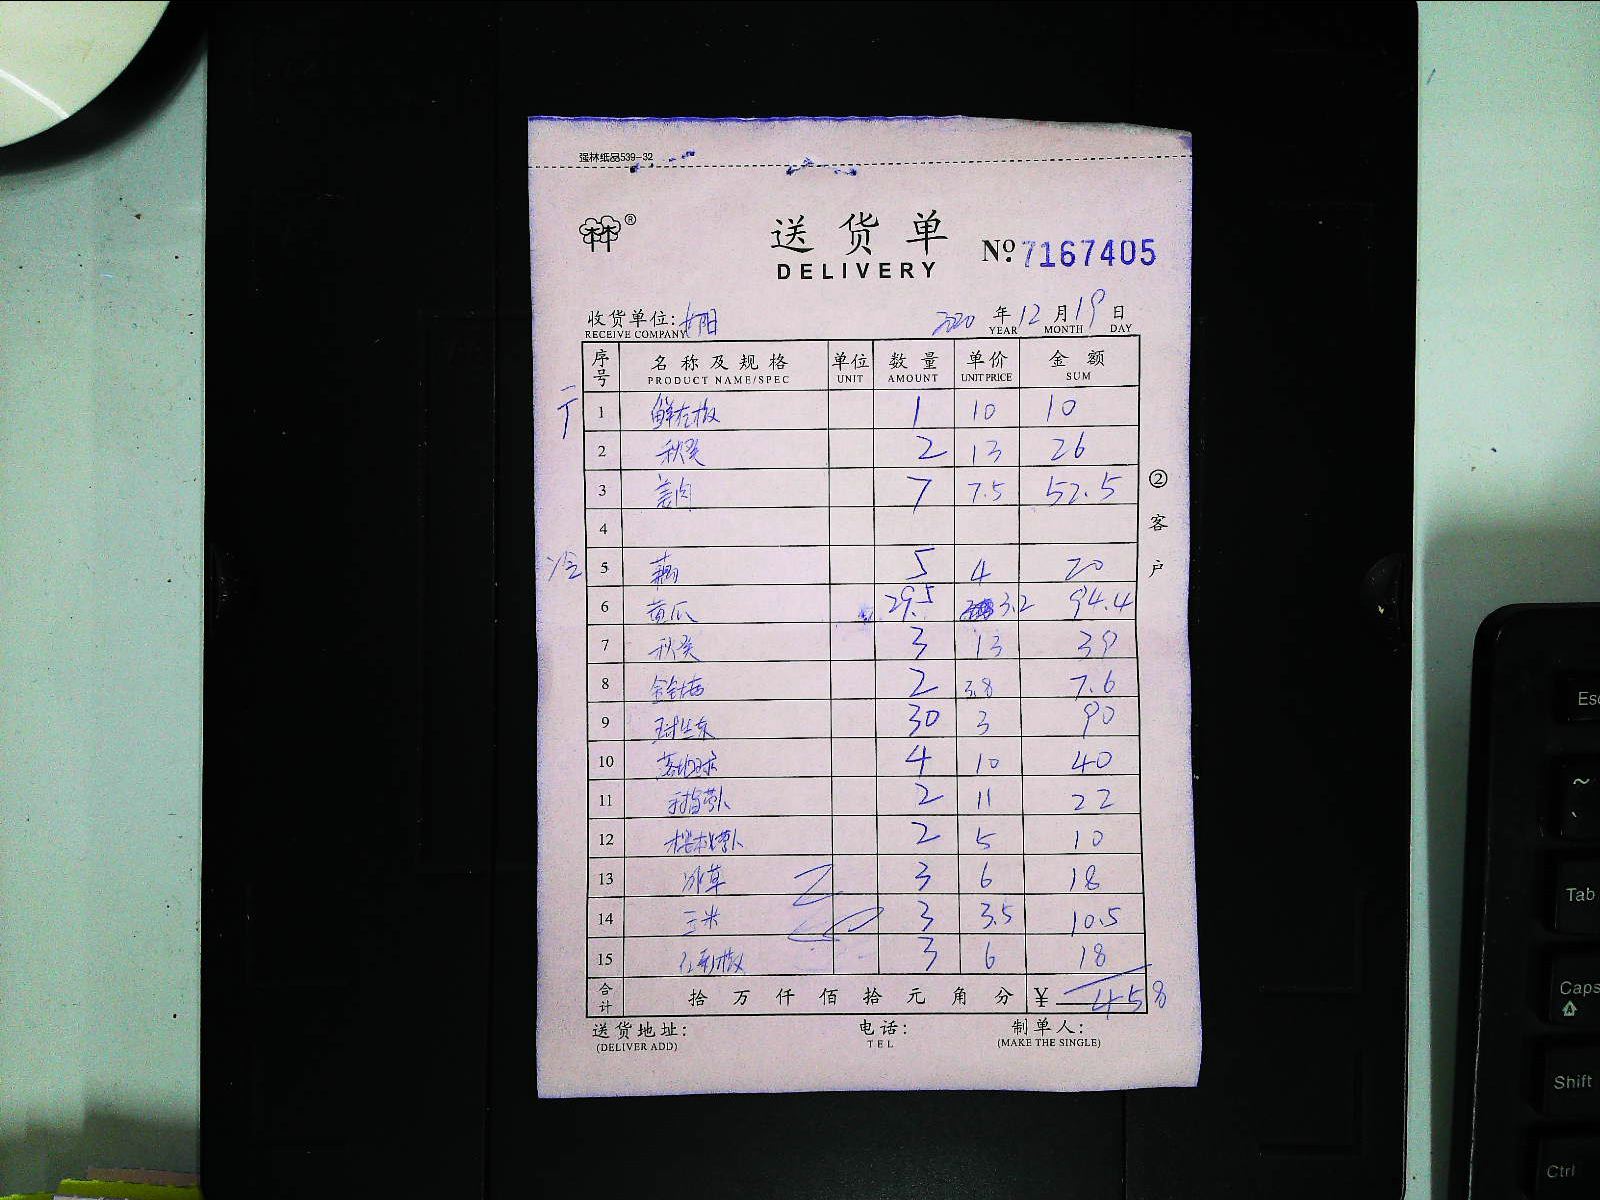 强林纸品539-32
®
送货单
DELIVERY
No. 7167405
收货单位:
RECEIVE COMPANY
2020 年 12 月 19 日
YEAR MONTH DAY
序号 名称及规格 单位 数量 单价 金额
PRODUCT NAME/SPEC UNIT AMOUNT UNIT PRICE SUM
1 鲜花椒 1 10 10
2 秋葵 2 13 26
3 姜肉 7 7.5 52.5
4
冷 5 藕 5 4 20
6 黄瓜 29.5 3.2 94.4
7 秋葵 3 13 39
8 2 3.8 7.6
9 球生菜 30 3 90
10 4 10 40
11 手指萝卜 2 11 22
12 樱桃萝卜 2 5 10
13 冰草 3 6 18
14 玉米 3 3.5 10.5
15 3 6 18
合计 拾 万 仟 佰 拾 元 角 分 ¥ 458
② 客户
送货地址: 电话: 制单人:
(DELIVER ADD) TEL (MAKE THE SINGLE)
Esc
~
、
Tab
Caps
Shift
Ctrl